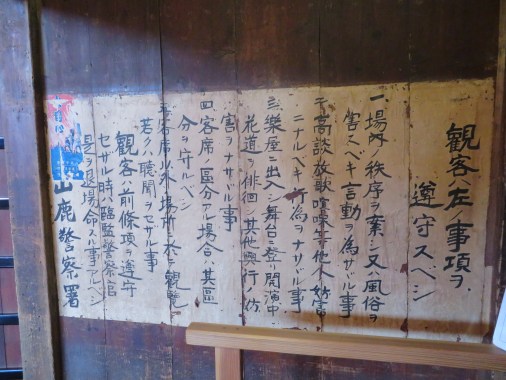 観客ハ左ノ事項ヲ
遵守スベシ
一、場内ノ秩序ヲ紊シ又ハ風俗ヲ
害スベキ言動ヲ為サザル事
二、高談放歌喧噪等他人ノ妨害
ニナルベキ行為ヲナサザル事
三、楽屋ニ出入シ舞台ニ登リ開演中
花道ヲ徘徊シ其他興行ノ妨
害ヲナサザル事
四、客席ノ区分アル場合ハ其區
分ヲ守ルベシ
客席以外ノ場所ニ於テ観覧
若クハ聴聞ヲセザル事
観客ハ前條項ヲ遵守
セザル時ハ臨監警察官
退場ヲ命スル事アルベシ
山鹿警察署